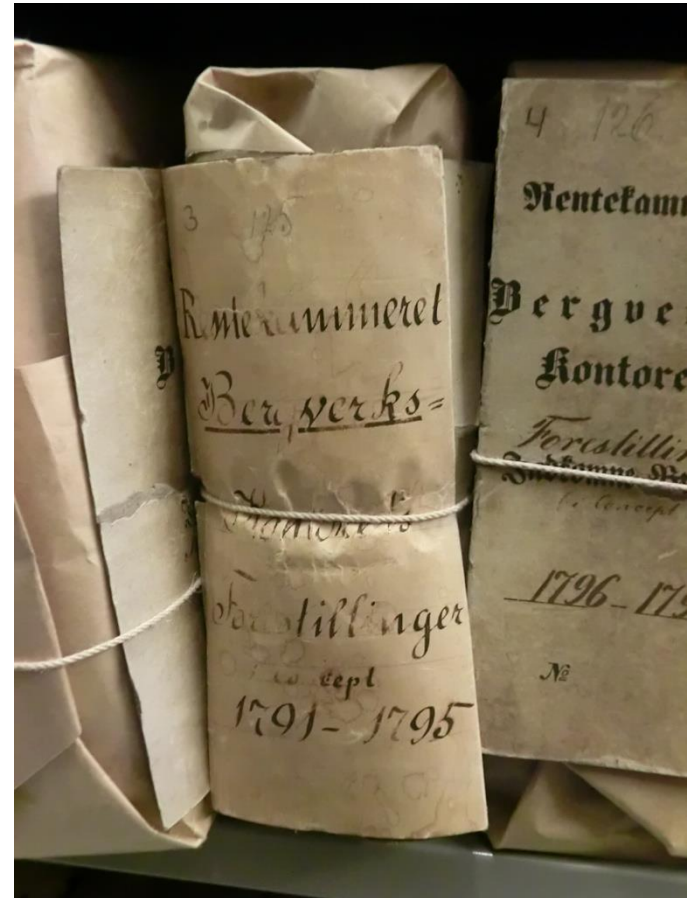 3 125
Rentekammeret
Bergverks=
Kontorets
Forestillinger
i concept
1791–1795
4 126
Rentekamm
Bergve
Kontore
Forestillin
Indkomne
i Concept
1796–179
№